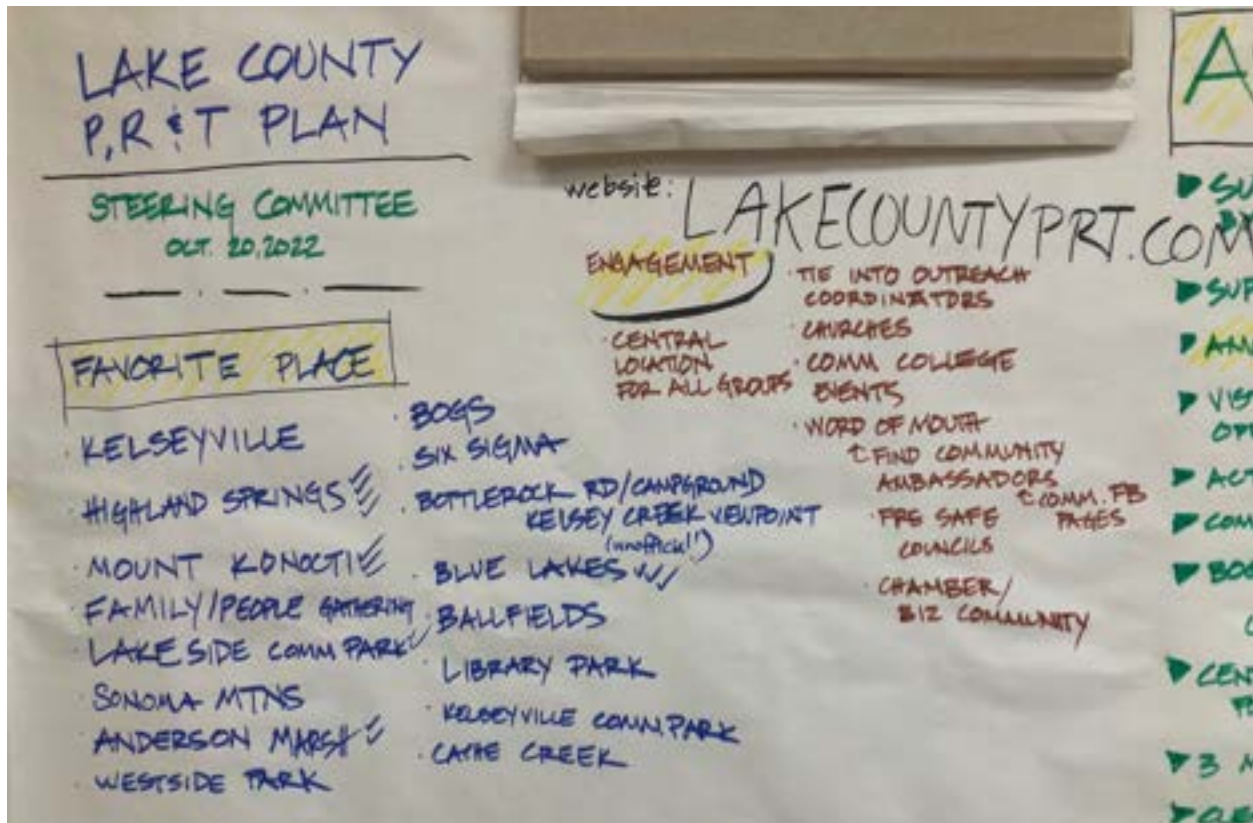 LAKE COUNTY
P, R & T PLAN
STEERING COMMITTEE
OCT. 20, 2022
FAVORITE PLACE
· KELSEYVILLE
· HIGHLAND SPRINGS
· MOUNT KONOCTI
· FAMILY/PEOPLE GATHERING
· LAKESIDE COMM PARK
· SONOMA MTNS
· ANDERSON MARSH
· WESTSIDE PARK
· BOGS
· SIX SIGMA
· BOTTLEROCK RD/CAMPGROUND
KELSEY CREEK VIEWPOINT
(unofficial!)
· BLUE LAKES
· BALLFIELDS
· LIBRARY PARK
· KELSEYVILLE COMM PARK
· CREEK
website: LAKECOUNTYPRT.COM
ENGAGEMENT
· CENTRAL
LOCATION
FOR ALL GROUPS
· TIE INTO OUTREACH
COORDINATORS
· CHURCHES
· COMM COLLEGE
EVENTS
· WORD OF MOUTH
FIND COMMUNITY
AMBASSADORS
COMM. FB
PAGES
· FIRE SAFE
COUNCILS
· CHAMBER/
BIZ COMMUNITY
A
SU
SUP
AM
VIS
OPP
ACT
COM
BOG
CEN
3 M
CLE